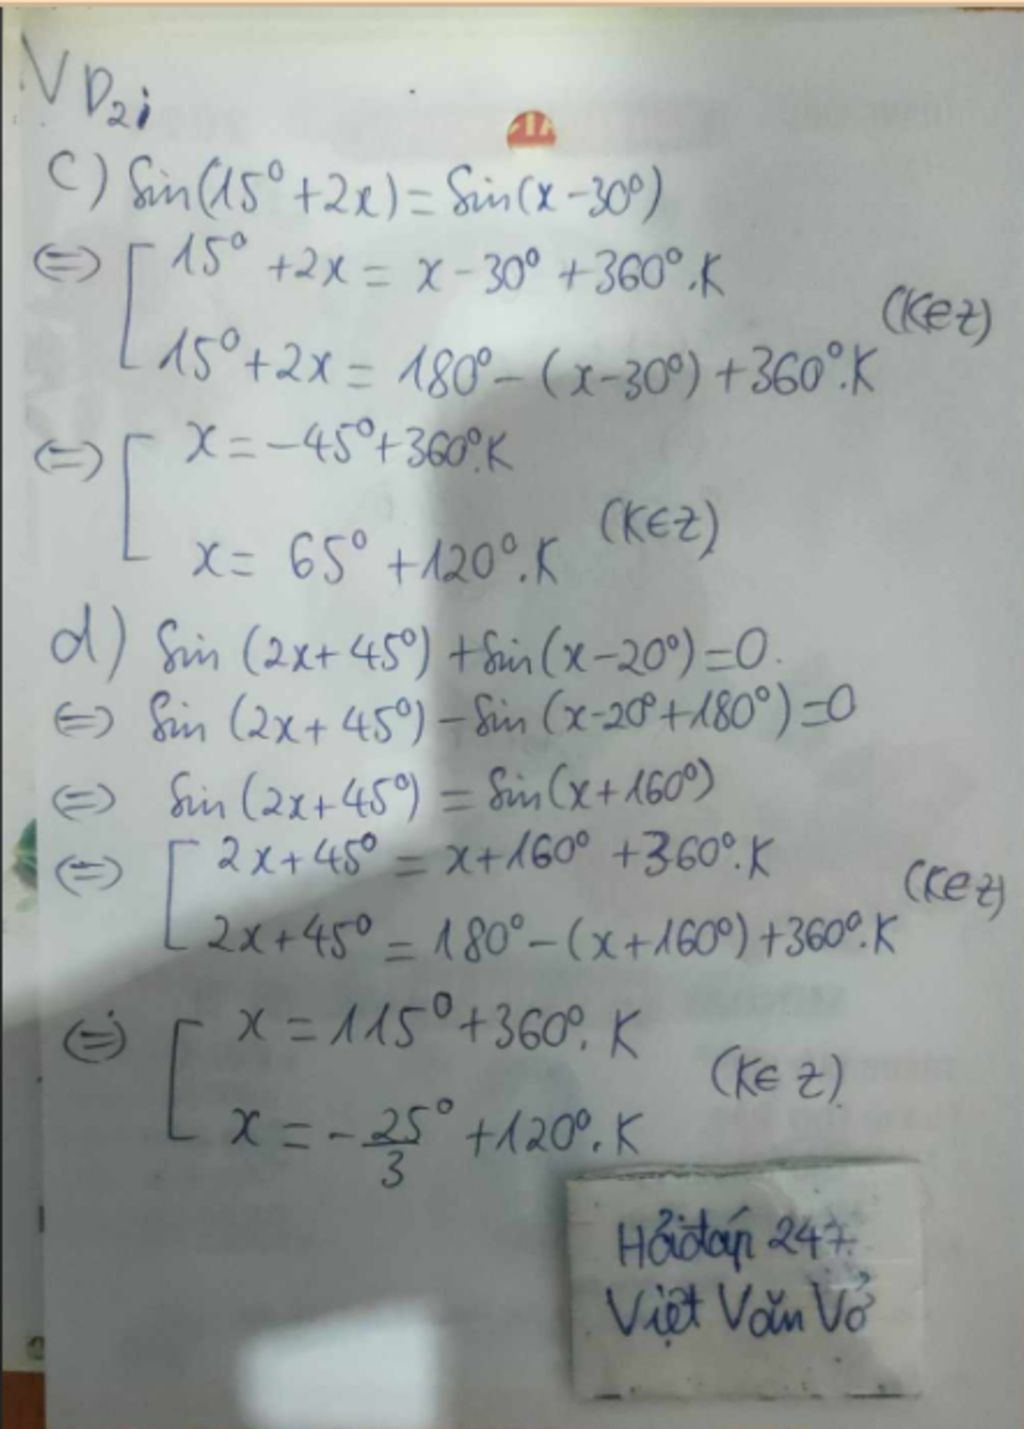 VD2:
c) Sin(15° + 2x) = Sin(x - 30°)
⇔ [ 15° + 2x = x - 30° + 360°.K
15° + 2x = 180° - (x - 30°) + 360°.K (K∈Z)
⇔ [ x = -45° + 360°.K
x = 65° + 120°.K (K∈Z)
d) Sin (2x + 45°) + Sin (x - 20°) = 0.
⇔ Sin (2x + 45°) - Sin (x - 20° + 180°) = 0
⇔ Sin (2x + 45°) = Sin (x + 160°)
⇔ [ 2x + 45° = x + 160° + 360°.K
2x + 45° = 180° - (x + 160°) + 360°.K (K∈Z)
⇔ [ x = 115° + 360°.K
x = -25°/3 + 120°.K (K∈Z)
Hỏiđáp 247
Việt Văn Vở